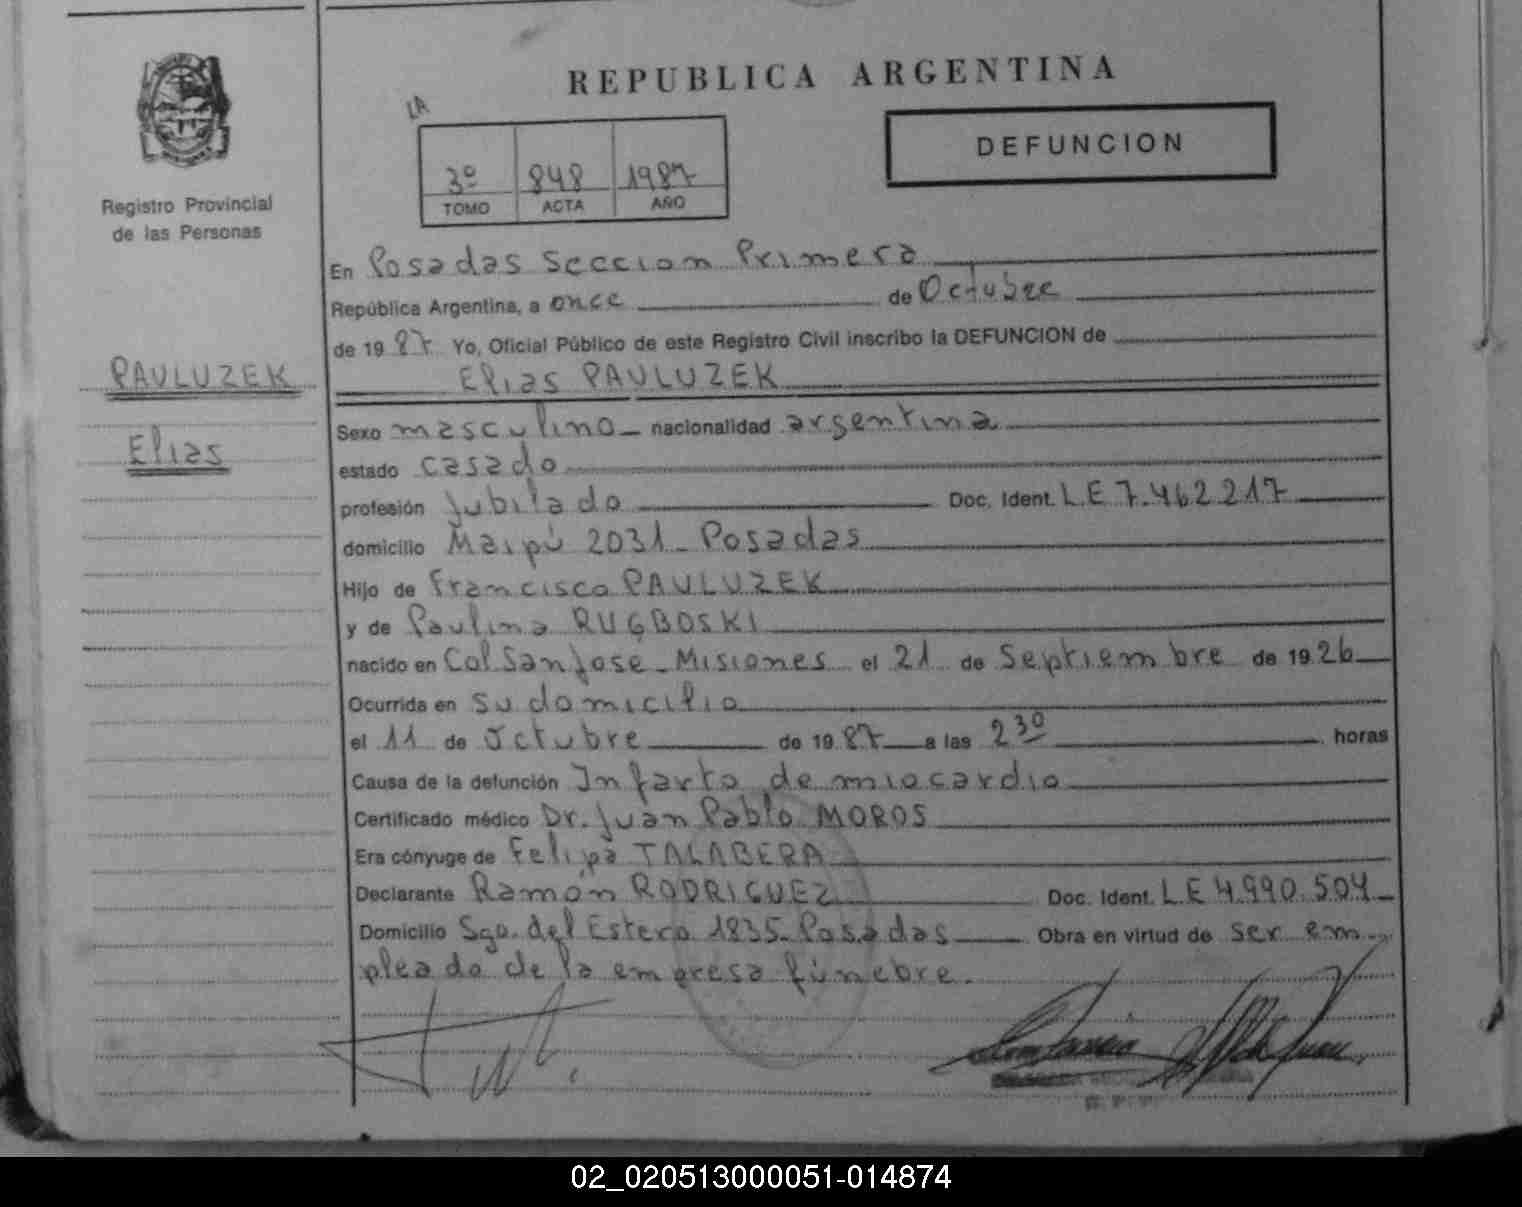 REPUBLICA ARGENTINA
LA
DEFUNCION
3º 848 1987
TOMO ACTA AÑO
Registro Provincial
de las Personas
PAULUZEK
Elias
En Posadas Seccion Primera
República Argentina, a once de Octubre
de 19 87 Yo, Oficial Público de este Registro Civil inscribo la DEFUNCION de
Elias PAULUZEK
Sexo masculino nacionalidad argentina
estado casado
profesión Jubilado Doc. Ident. L.E 7.462.217
domicilio Maipú 2031 - Posadas
Hijo de Francisco PAULUZEK
y de Paulina RUGBOSKI
nacido en Col San Jose - Misiones el 21 de Septiembre de 19 26
Ocurrida en su domicilio
el 11 de Octubre de 19 87 a las 2 30 horas
Causa de la defunción Infarto de miocardio
Certificado médico Dr. Juan Pablo MOROS
Era cónyuge de Felipa TALABERA
Declarante Ramón RODRIGUEZ Doc. Ident. L.E 4.990.504
Domicilio Sgo. del Estero 1835 - Posadas Obra en virtud de ser em-
pleado de la empresa fúnebre.
02_020513000051-014874